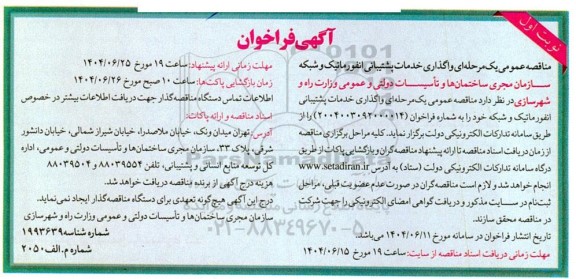 نوبت اول
آگهی فراخوان
مناقصه عمومی یک مرحله‌ای واگذاری خدمات پشتیبانی انفورماتیک و شبکه
سازمان مجری ساختمان‌ها و تأسیسات دولتی و عمومی وزارت راه و
شهرسازی در نظر دارد مناقصه عمومی یک مرحله‌ای واگذاری خدمات پشتیبانی
انفورماتیک و شبکه خود را به شماره فراخوان (۲۰۰۴۰۰۳۰۹۲۰۰۰۰۱۴) را از
طریق سامانه تدارکات الکترونیکی دولت برگزار نماید. کلیه مراحل برگزاری مناقصه
از زمان دریافت اسناد مناقصه تا ارائه پیشنهاد مناقصه گران و بازگشایی پاکات از طریق
درگاه سامانه تدارکات الکترونیکی دولت (ستاد) به آدرس www.setadiran.ir
انجام خواهد شد و لازم است مناقصه گران در صورت عدم عضویت قبلی، مراحل
ثبت نام در سایت مذکور و دریافت گواهی امضای الکترونیکی را جهت شرکت
در مناقصه محقق سازند.
تاریخ انتشار فراخوان در سامانه مورخ ۱۴۰۴/۰۶/۱۱ می‌باشد.
مهلت زمانی دریافت اسناد مناقصه از سایت: ساعت ۱۹ مورخ ۱۴۰۴/۰۶/۱۵
مهلت زمانی ارائه پیشنهاد: ساعت ۱۹ مورخ ۱۴۰۴/۰۶/۲۵
زمان بازگشایی پاکت‌ها: ساعت ۱۰ صبح مورخ ۱۴۰۴/۰۶/۲۶
اطلاعات تماس دستگاه مناقصه گذار جهت دریافت اطلاعات بیشتر در خصوص
اسناد مناقصه و ارائه پاکات:
آدرس: تهران میدان ونک، خیابان ملاصدرا، خیابان شیراز شمالی، خیابان دانشور
شرقی، پلاک ۳۳، سازمان مجری ساختمان‌ها و تأسیسات دولتی و عمومی، اداره
کل توسعه منابع انسانی و پشتیبانی، تلفن ۸۸۰۳۹۵۵۴ و ۸۸۰۳۹۵۰۴
هزینه درج آگهی از برنده مناقصه دریافت خواهد شد.
درج این آگهی هیچ گونه تعهدی برای دستگاه مناقصه گذار ایجاد نمی‌نماید.
سازمان مجری ساختمان‌ها و تأسیسات دولتی و عمومی وزارت راه و شهرسازی
شماره شناسه ۱۹۹۳۶۳۹
شماره م.الف ۲۰۵۰
ParsNamadData
۰۲۱-۸۸۳۴۹۶۷۰-۵